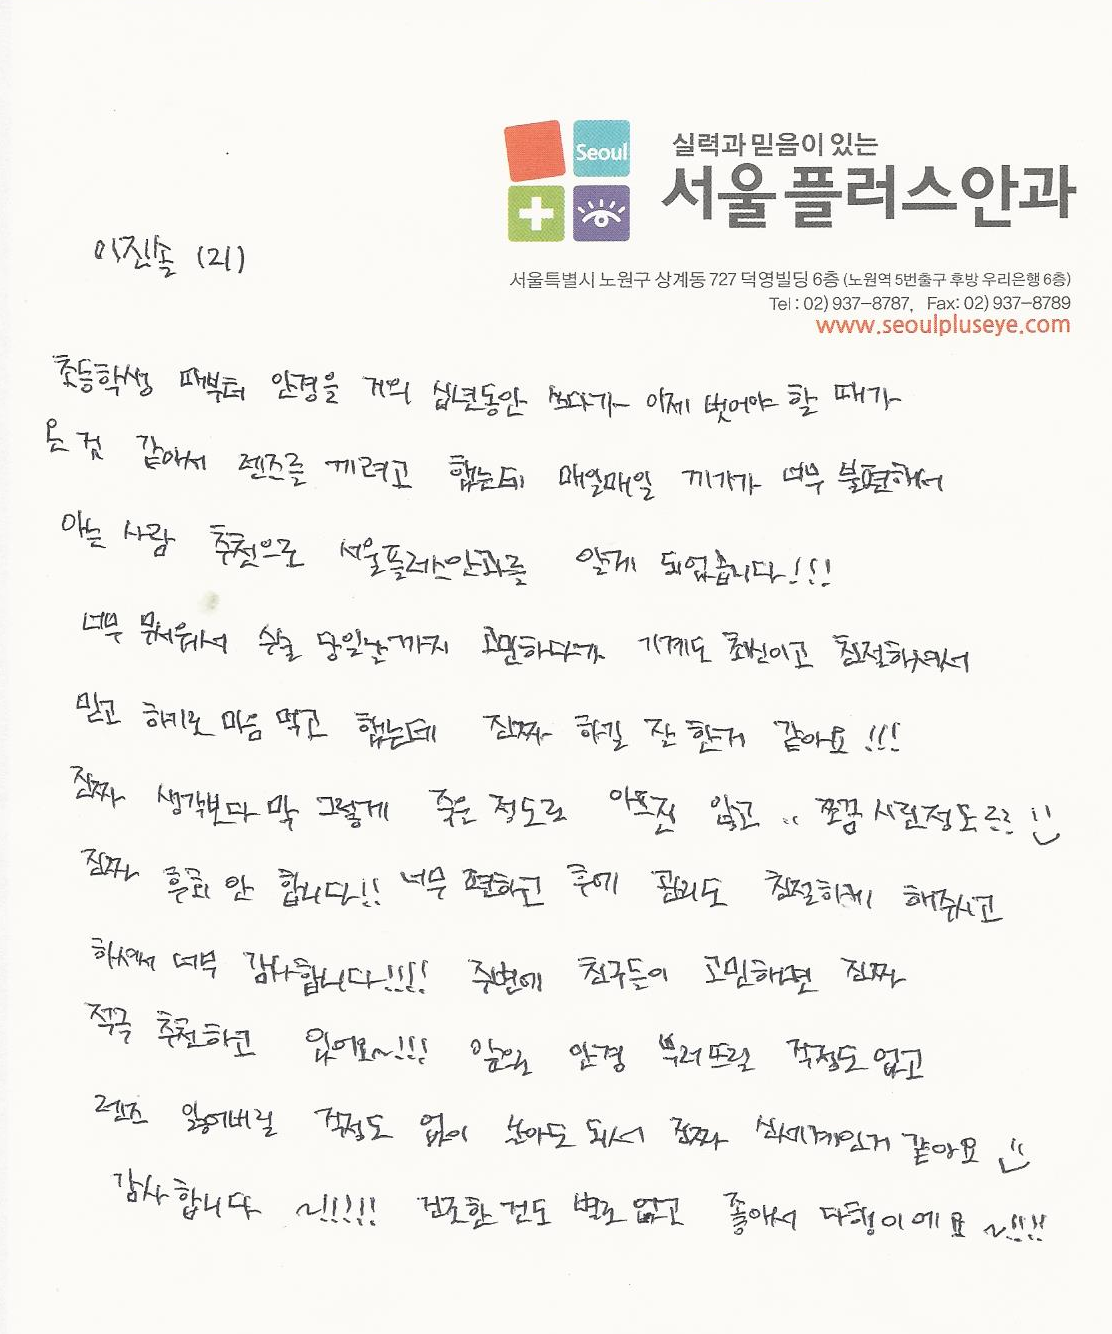 Seoul
실력과 믿음이 있는
서울플러스안과
이진솔 (21)
서울특별시 노원구 상계동 727 덕영빌딩 6층 (노원역 5번출구 후방 우리은행 6층)
Tel : 02) 937-8787,  Fax: 02) 937-8789
www.seoulpluseye.com
초등학생 때부터 안경을 거의 십년동안 쓰다가 이제 벗어야 할 때가
온 것 같아서 렌즈를 끼려고 했는데 매일매일 끼기가 너무 불편해서
아는 사람 추천으로 서울플러스안과를 알게 되었습니다!!!
너무 무서워서 수술 당일날까지 고민하다가 기계도 최신이고 친절하셔서
믿고 하기로 마음 먹고 했는데 진짜 하길 잘 한거 같아요!!!
진짜 생각보다 막 그렇게 죽을 정도로 아프진 않고 .. 쪼끔 시린정도ㄹㄹ :)
진짜 후회 안 합니다!! 너무 편하고 후에 관리도 친절하게 해주시고
하셔서 너무 감사합니다!!!! 주변에 친구들이 고민하면 진짜
적극 추천하고 있어요~!!! 안경 부러뜨릴 걱정도 없고
렌즈 잃어버릴 걱정도 없이 놀아도 되서 진짜 신세계인거 같아요 :)
감사합니다 ~!!!!! 건조한 건도 별로 없고 좋아서 다행이에요 ~!!!!